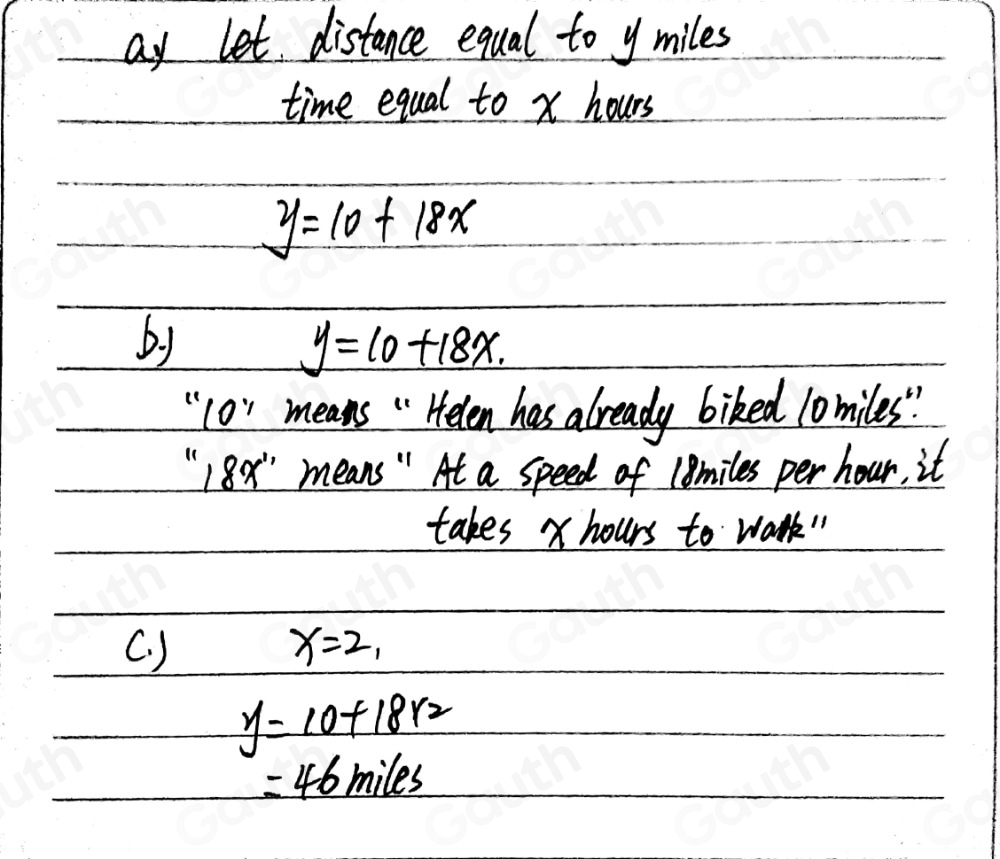 a.) let. distance equal to y miles
time equal to x hours
y = 10 + 18x
b.) y = 10 + 18x.
"10" means "Helen has already biked 10 miles".
"18x" means "At a speed of 18 miles per hour, it
takes x hours to walk"
C.) x = 2,
y = 10 + 18 × 2
= 46 miles